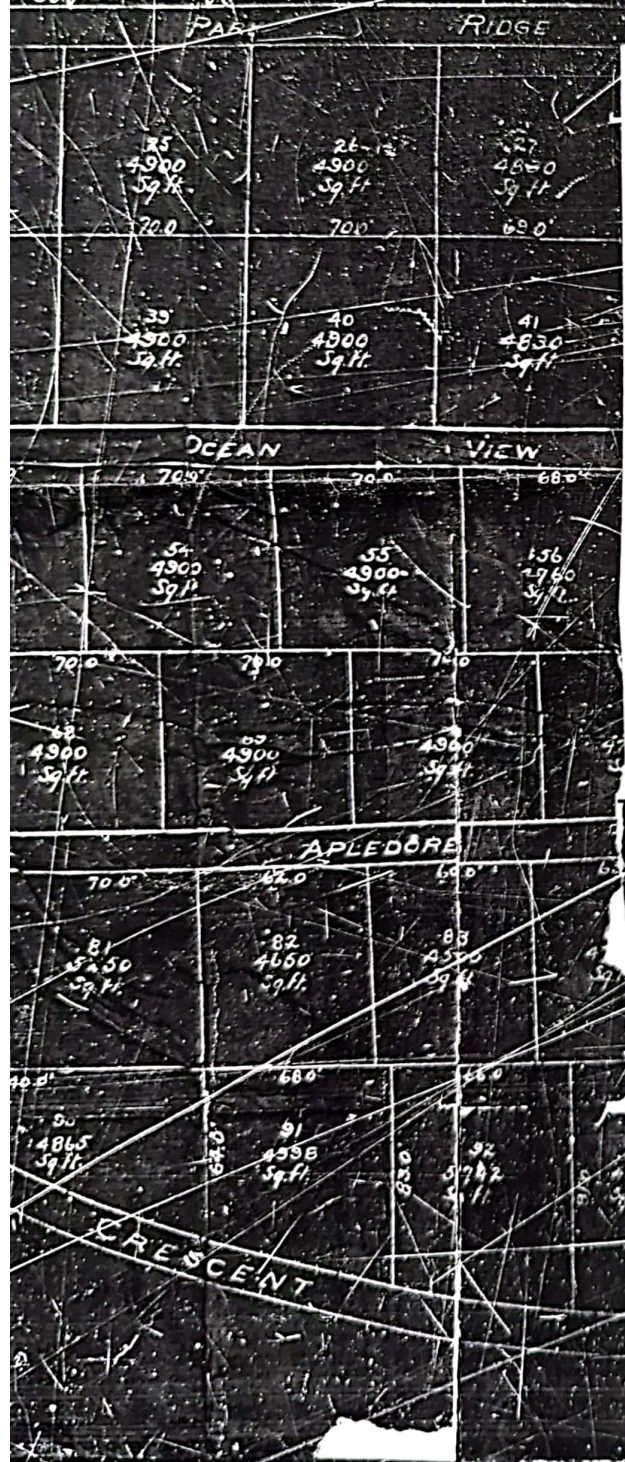 RIDGE
25
4900
Sq.ft.
26
4900
Sq.ft.
27
Sq.ft.
70.0
70.0
69.0
39
4900
Sq.ft.
40
4900
Sq.ft.
41
4830
Sq.ft.
OCEAN VIEW
70.0
70.0
68.0
54
4900
Sq.ft.
55
4900
Sq.ft.
56
4760
Sq.ft.
70.0
70.0
70.0
4900
Sq.ft.
69
4900
Sq.ft.
4900
Sq.ft.
APLEDORE
70.0
62.0
60.0
81
5250
Sq.ft.
82
4650
Sq.ft.
83
Sq.ft.
40.0
68.0
66.0
90
4865
Sq.ft.
67.0
91
4998
Sq.ft.
83.0
92
Sq.ft.
CRESCENT